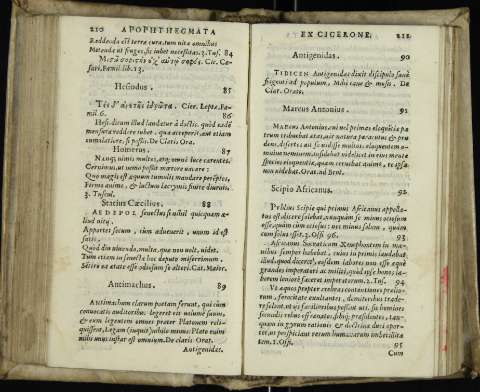 210 APOPHTHEGMATA
Reddenda est terræ terra: tum vita omnibus
Metenda ut fruges, sic iubet necessitas. 3. Tus. 84
Cic. Cæ-
sari, Famil. lib. 13.
Hesiodus. 85
Cicer. Lepta, Fa-
mil. 6. 86
Hesiodum illud laudatur à doctis, quòd eadē
mensura reddere iubet, qua acceperis, aut etiam
cumulatiore, si possis. De Claris Orat.
Homerus. 87
Namq; nimis multos, atq; omni luce carentes
Cernimus, ut nemo possit mœrore vacare:
Quo magis est æquum tumulis mandare peremptos,
Firmo animo, & luctum lacrymis finire diurnis.
3. Tuscul.
Statius Cæcilius. 88
ÆDEPOL senectus si nihil quicquam a-
liud vitij
Apportet secum, cùm aduenerit, unum id est
satis
Quòd diu viuendo, multa, quæ non volt, videt.
Tum etiam in senecta hoc deputo miserrimum,
Sentire ea ætate esse odiosum se alteri. Cat. Maior.
Antimachus. 89
Antimachum clarum poetam ferunt, qui cùm
conuocatis auditoribus legeret eis volumē suum,
& eum legentem omnes præter Platonem reli-
quissent, Legam (inquit) nihilo minus: Plato enim
mihi unus instar est omnium. De claris Orat.
Antigenidas.
EX CICERONE. 211
Antigenidas. 90
TIBICEN Antigenidas dixit discipulo sanè
frigenti ad populum, Mihi cane & musis. De
Clar. Orato.
Marcus Antonius. 91
Marcus Antonius, cui vel primas eloquētiæ pa-
trum tribuebat ætas, vir natura peracutus & pru-
dens, disertos ait se vidisse multos, eloquentem o-
mnino neminem, insidebat videlicet in eius mente
species eloquentiæ, quam cernebat animo, re ipsa
non videbat. Orat. ad Brut.
92
Scipio Africanus.
Publius Scipio qui primus Africanus appella-
tus est dicere solebat, nunquam se minus ociosum
esse, quàm cùm ociosus: nec minus solum, quàm
cum solus esset. 3. Offi. 96. 93
Africanus Socraticum Xenophontem in ma-
nibus semper habebat, cuius in primis laudabat
illud, quod diceret, eosdem labores non esse æquè
grandes imperatori ac militi, quòd ipse honos, la-
borem leuiorē faceret imperatorium. 2. Tus. 94
Ut æquos propter crebras contentiones prælio-
rum, ferocitate exultantes, domitoribus trade-
re solent, ut ijs facilioribus possint uti, sic homines
secundis rebus effrenatos, sibiq; præfidentes, tan-
quam in gyrum rationis & doctrinæ duci opor-
tet, ut perspiciant rerum humanarum imbecillita-
tem. 1. Offi. 95
Cum